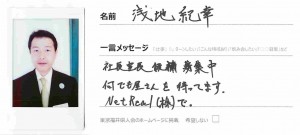 名前 浅地紀幸
一言メッセージ
社長室長候補募集中
何でも屋さんを待ってます。
NetReal(株)で。
希望しない